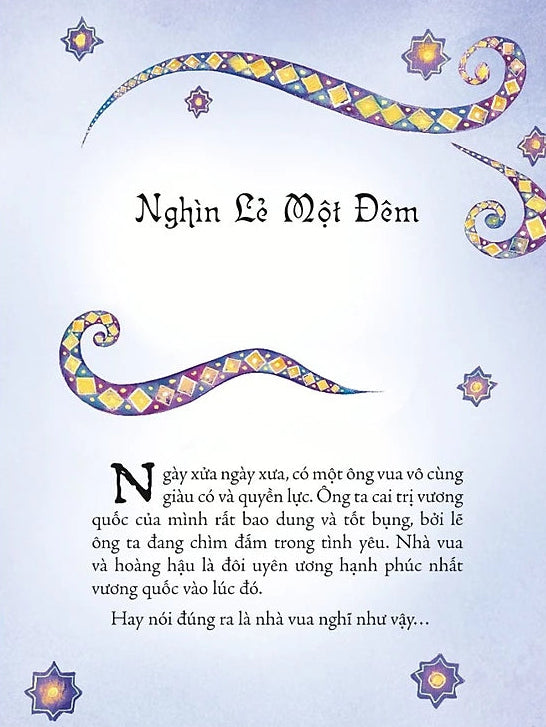 Nghìn Lẻ Một Đêm
Ngày xửa ngày xưa, có một ông vua vô cùng
giàu có và quyền lực. Ông ta cai trị vương
quốc của mình rất bao dung và tốt bụng, bởi lẽ
ông ta đang chìm đắm trong tình yêu. Nhà vua
và hoàng hậu là đôi uyên ương hạnh phúc nhất
vương quốc vào lúc đó.
Hay nói đúng ra là nhà vua nghĩ như vậy...